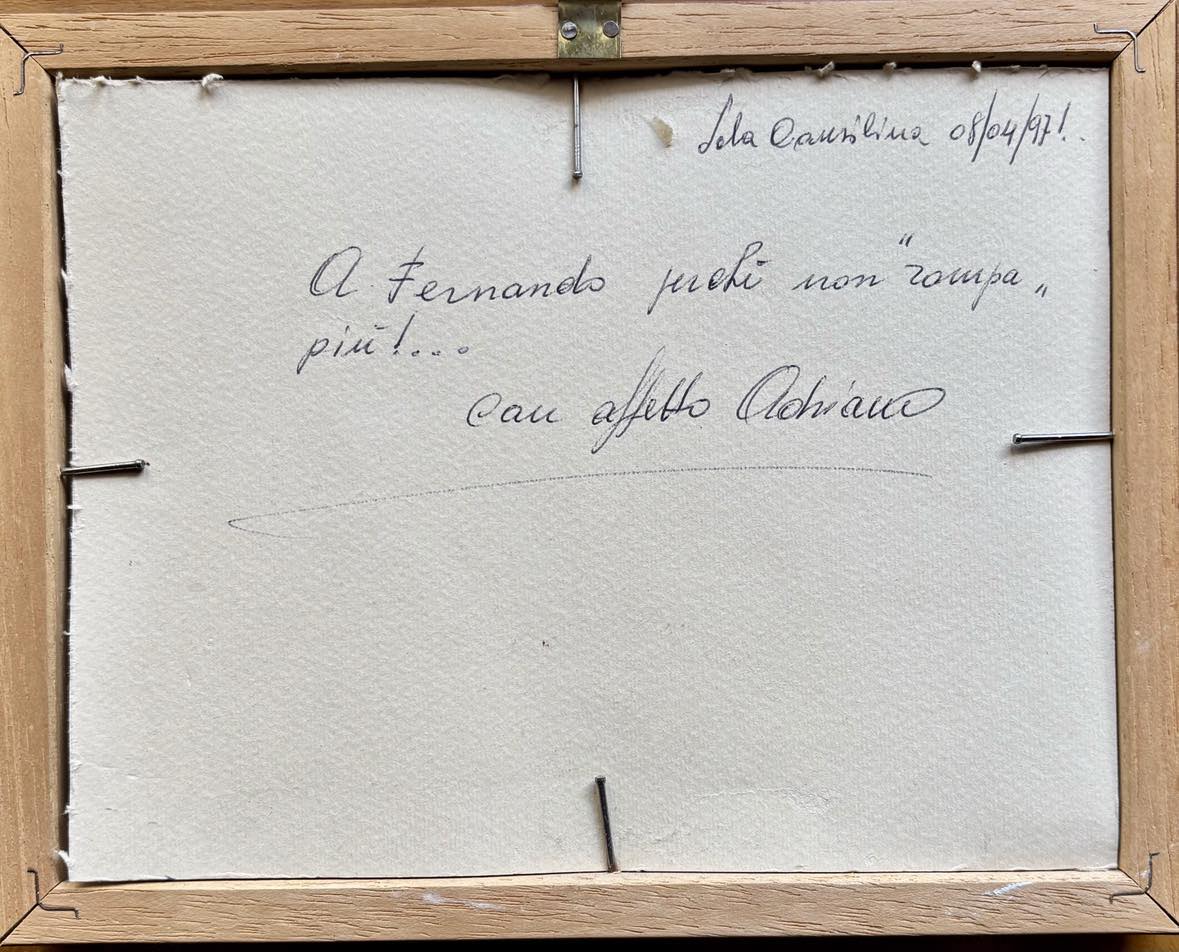 Sala Consilina 08/04/97!.
A Fernando perché non "rompa„
più!...
con affetto Adriano